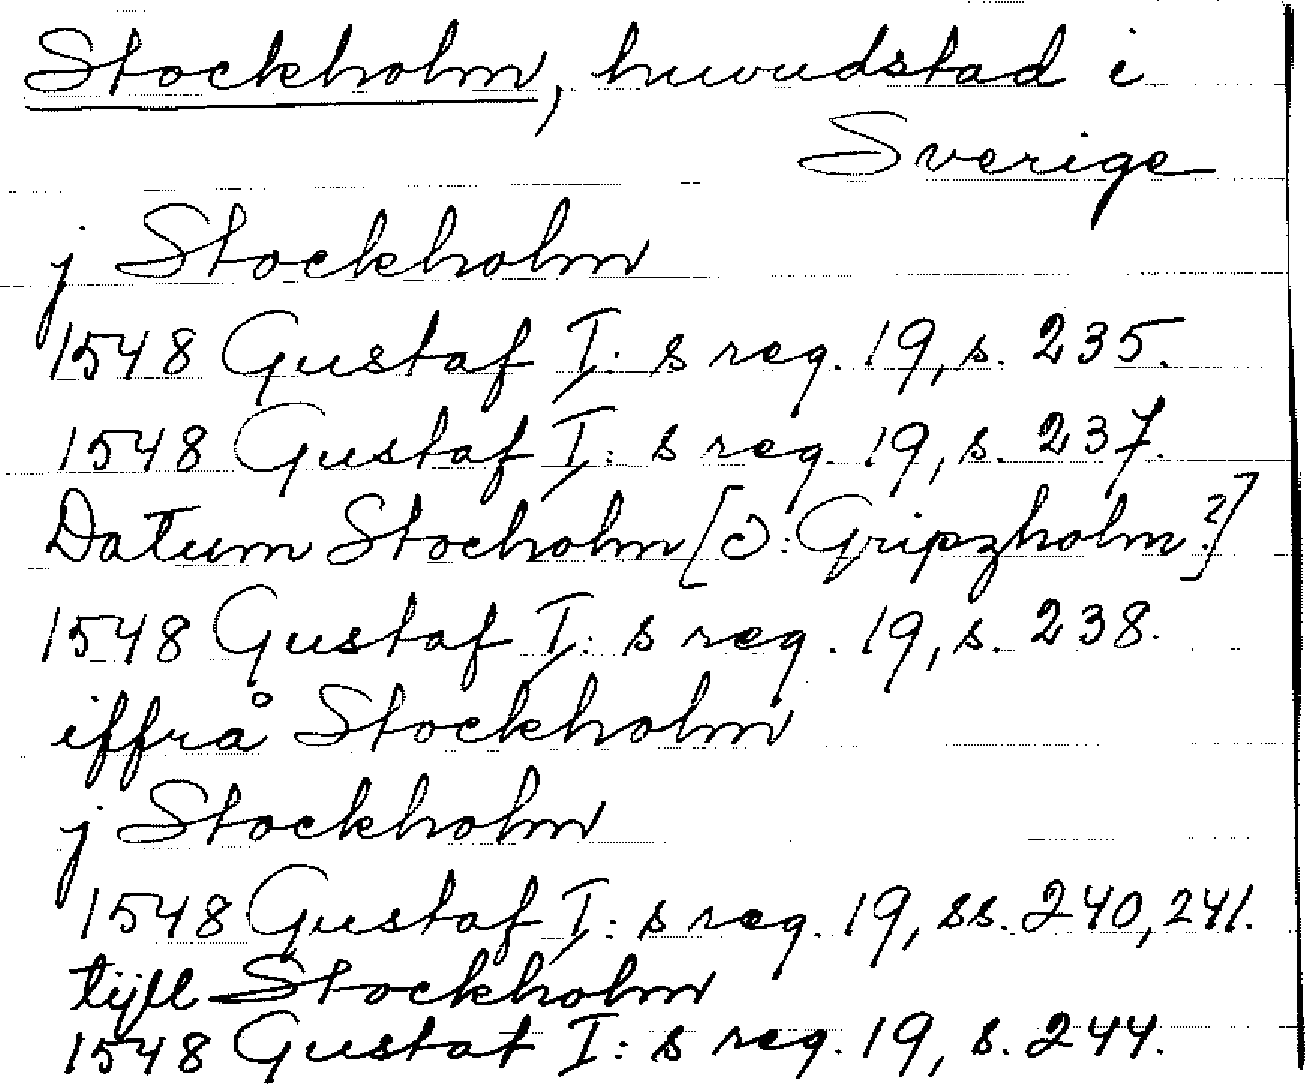 Stockholm, huvudstad i
Sverige
j Stockholm
1548 Gustaf I: s reg. 19, s. 235.
1548 Gustaf I: s reg. 19, s. 237.
Datum Stocholm [ɔ: Gripzholm?]
1548 Gustaf I: s reg. 19, s. 238.
iffrå Stockholm
j Stockholm
1548 Gustaf I: s reg. 19, ss. 240, 241.
tijll Stockholm
1548 Gustaf I: s reg. 19, s. 244.